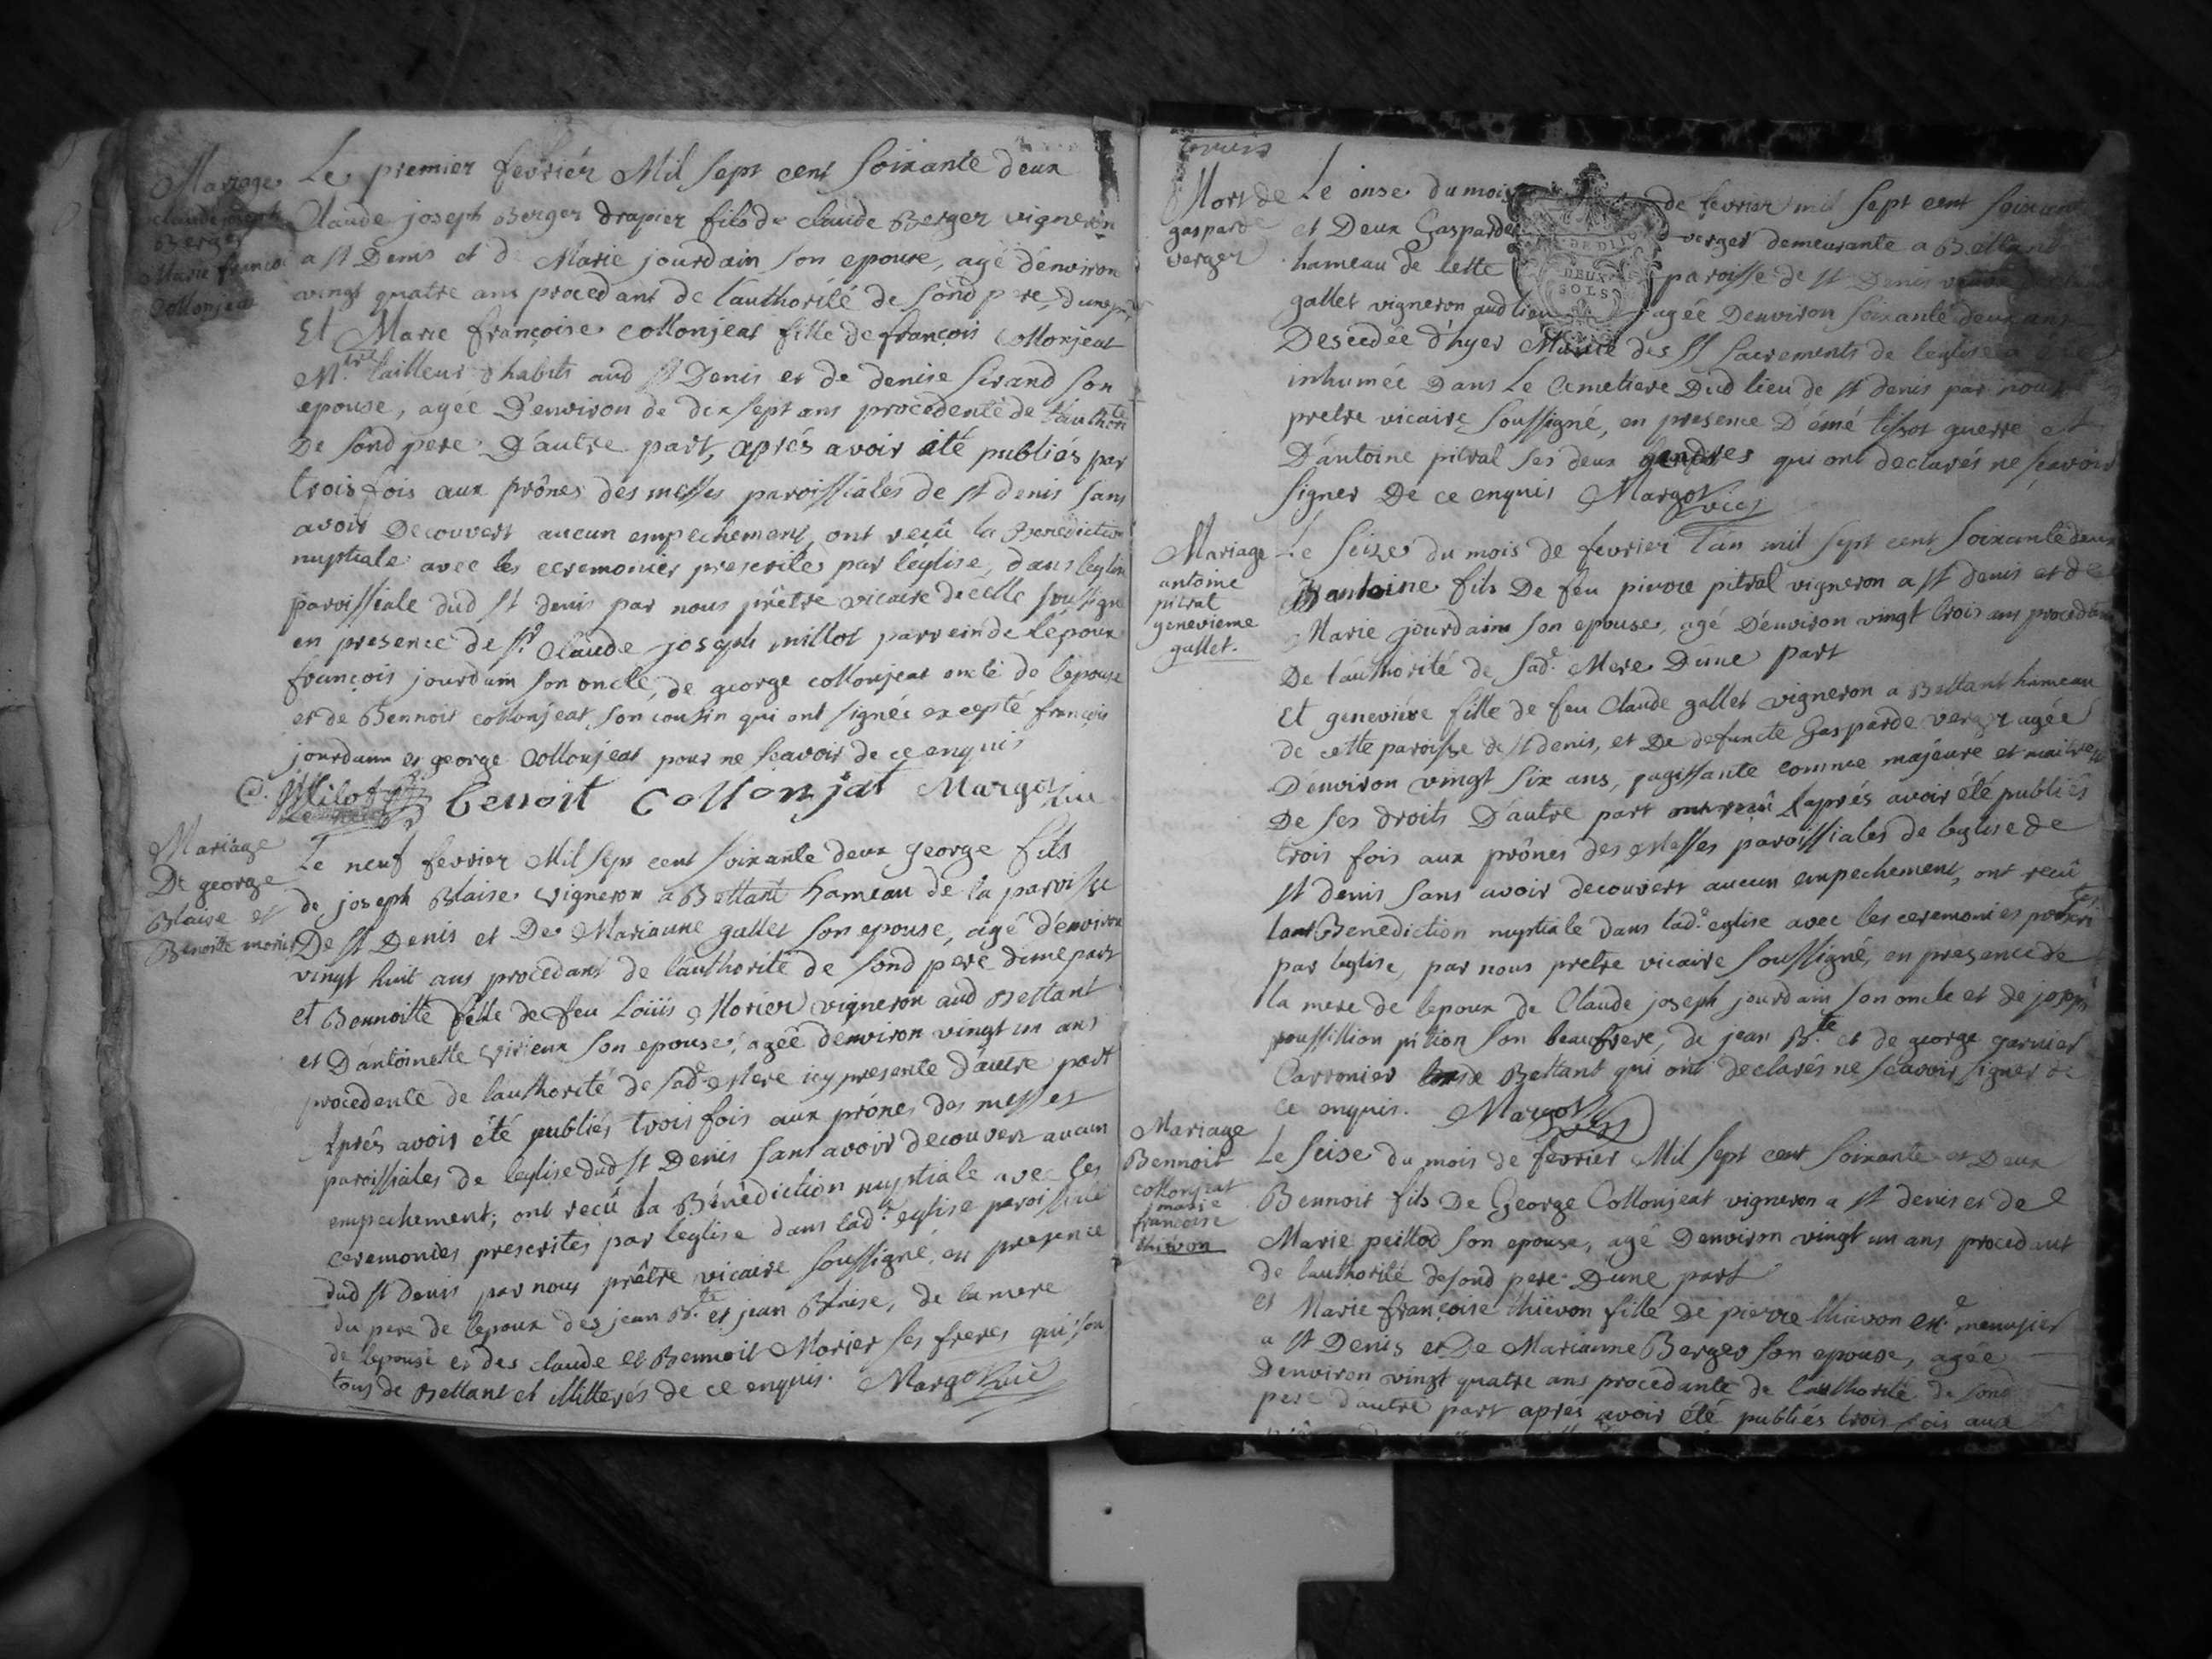 Mariage
claude joseph
Berger
Marie francoi
Collonjeat
Le premier fevrier Mil sept cent soixante deux
Claude joseph Berger drapier fils de claude Berger vigneron
a st Denis et de Marie jourdain son epouse, agé d'environ
vingt quatre ans procedant de l'authorité de sond pere, dune p
Et Marie françoise collonjeat fille de françois Collonjeat
M.tre tailleur d'habits aud st Denis et de denise sirand son
epouse, agée D'environ de dix sept ans procedente de l'authorite
De sond pere D'autre part, aprés avoir été publiés par
trois fois aux prônes des messes paroissiales de st denis sans
avoir Decouvert aucun empechement, ont reçû la Benediction
nuptiale avec les ceremonies prescrites par léglise, dans leglise
paroissiale dud st denis par nous prêtre vicaire d'icelle soussigné
en presence de sr Claude joseph millot parrein de l'époux
françois jourdain son oncle, de george collonjeat oncle de lepouse
et de Bennoit collonjeat son cousin qui ont signés excepté françois
jourdain et george Collonjeat pour ne sçavoir de ce enquis
C. Millot benoit collonjat Margot vic
Mariage
De george
Blaise et
Benoitte morier
Le neuf fevrier Mil sept cent soixante deux george fils
de joseph Blaise vigneron a Bettant hameau de la paroisse
De st Denis et De Marianne gallet son epouse, agé d'environ
vingt huit ans procedant de l'authorité de sond pere d'une part
et Bennoitte fille de feu Loüis Morier vigneron aud Bettant
et D'antoinette virieux son epouse, agée d'environ vingt un ans
procedente de l'authorité de sade. Mere icy presente d'autre part
Aprés avoir été publiés trois fois aux prónes des messes
paroissiales de leglise dud st Denis sans avoir decouvert aucun
empechement; ont reçû la Bénédiction nuptiale avec les
ceremonies prescrites par leglise dans lade. eglise paroissiale
dud st denis par nous prêtre vicaire soussigné, en presence
du pere de lepoux des jean B.te et jean Blaise, de la mere
de lepouse et des claude et Bennoit Morier ses freres qui son
tous de Bettant et illitterés de ce enquis. Margot vic
Mort de
gasparde
verger
Le onse du mois de fevrier mil sept cent soixant
et Deux Gasparde verger demeurante a Bettant
hameau de cette paroisse de st Denis
gallet vigneron aud lieu agée D'environ soixante deux ans
DE DIJO
DEUX
SOLS
Decedée d'hyer Munie des sts sacrements de leglise a
inhumée Dans Le Cemetiere Dud lieu de st denis par nous
pretre vicaire soussigné, en presence D'émé tissot guerre et
D'antoine pitral ses deux gendres qui ont declarés ne sçavoir
signer De ce enquis Margot vic
Mariage
antoine
pitral
genevieme
gallet.
Le Seize du mois de fevrier l'an mil sept cent soixante deux
antoine fils De feu pierre pitral vigneron a st denis et de
Marie jourdain son epouse, agé D'environ vingt trois ans procedant
De l'authorité de sade. Mere D'une part
Et geneviéve fille de feu Claude gallet vigneron a Bettant hameau
de cette paroisse de st denis, et De defuncte Gasparde verger agée
D'environ vingt six ans, agissante comme majeure et maitresse
De ses droits D'autre part aprés avoir été publiés
trois fois aux prônes des Messes paroissiales de leglise de
st denis sans avoir decouvert aucun empechement, ont reçû
la Benediction nuptiale dans lade. eglise avec les ceremonies
par leglise, par nous pretre vicaire soussigné, en presence de
la mere de lepoux de Claude joseph jourdain son oncle et de joseph
roussillion pition son beaufrere, de jean B.te et de george garnier
Carronier de Bettant qui ont declarés ne sçavoir signer de
ce enquis. Margot vic
Mariage
Bennoit
collonjeat
marie
francoise
thievon
Le Seise du mois de fevrier Mil sept cent soixante et Deux
Bennoit fils De George Collonjeat vigneron a st denis et de
Marie peillod son epouse, agé D'environ vingt un ans procedant
de l'authorité de sond pere D'une part
et Marie françoise thiévon fille De pierre thiévon Me. menusier
a st Denis et De Marianne Berger son epouse, agée
Denviron vingt quatre ans procedante de l'authorité de sond
pere d'autre part aprés avoir été publiés trois fois aux